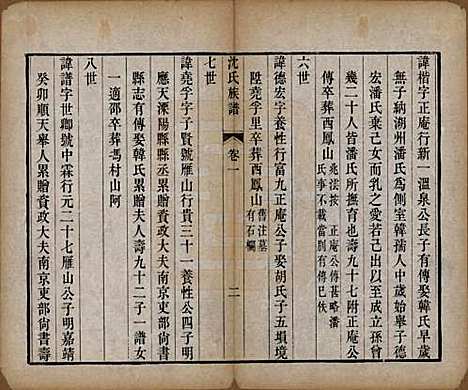 諱楷字正庵行新一溫泉公長子有傳娶韓氏早歲
無子納湖州潘氏為側室韓孺人中歲始舉子德
宏潘氏棄己女而乳之愛若己出歷立孫曾
幾二十人皆潘氏所撫育也壽九十七附正庵公
傳卒葬西鳳山兆法按正庵公傳甚略潘
氏事不載當別有傳已佚
六世
諱德宏字養性行富九正庵公子娶胡氏子五墳境
陞堯孚里卒葬西鳳山舊注墓
有石欄
七世
沈氏族譜
卷一
二
諱堯孚字子賢號雁山行貴三十一養性公四子明
應天溧陽縣縣丞累贈資政大夫南京吏部尚書
縣志有傳娶韓氏累贈夫人壽九十二子一譜女
一適邵卒葬馮村山阿
八世
諱譜字世卿號中霖行元二十七雁山公子明嘉靖
癸卯順天舉人累贈資政大夫南京吏部尚書壽